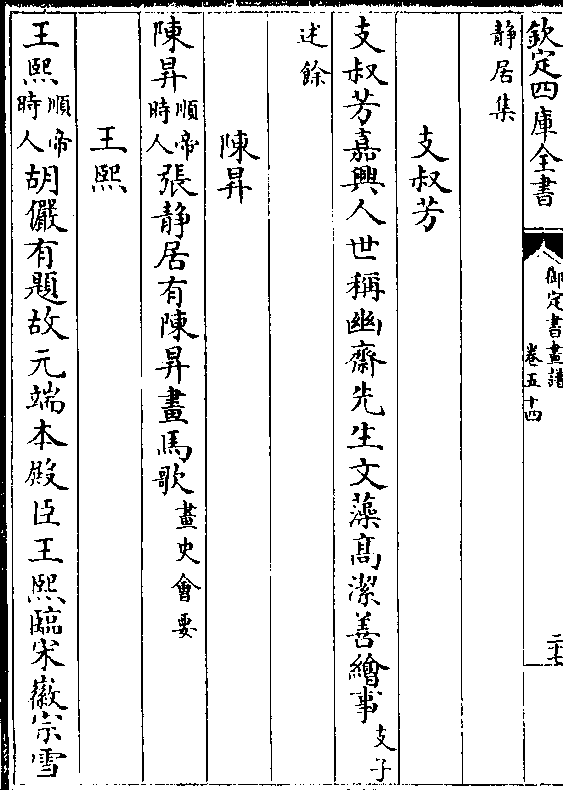 欽定四庫全書
御定書畫譜
卷五十四
二十七
静居集
支叔芳
支叔芳嘉興人世稱幽齋先生文藻髙潔善繪事支子
述餘
陳昇
陳昇順帝時人張静居有陳昇畫馬歌畫史會要
王熙
王熙順帝時人胡儼有題故元端本殿臣王熙臨宋徽宗雪